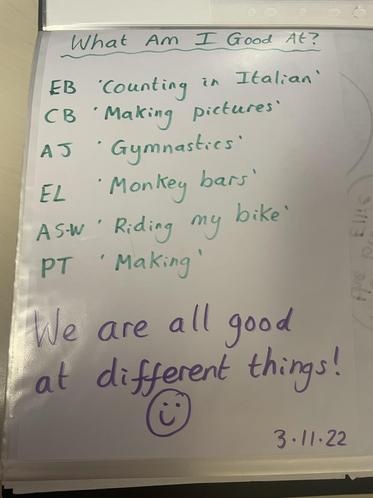 What Am I Good At?
EB 'Counting in Italian'
CB 'Making pictures'
AJ 'Gymnastics'
EL 'Monkey bars'
AS-W 'Riding my bike'
PT 'Making'
We are all good
at different things!
3.11.22